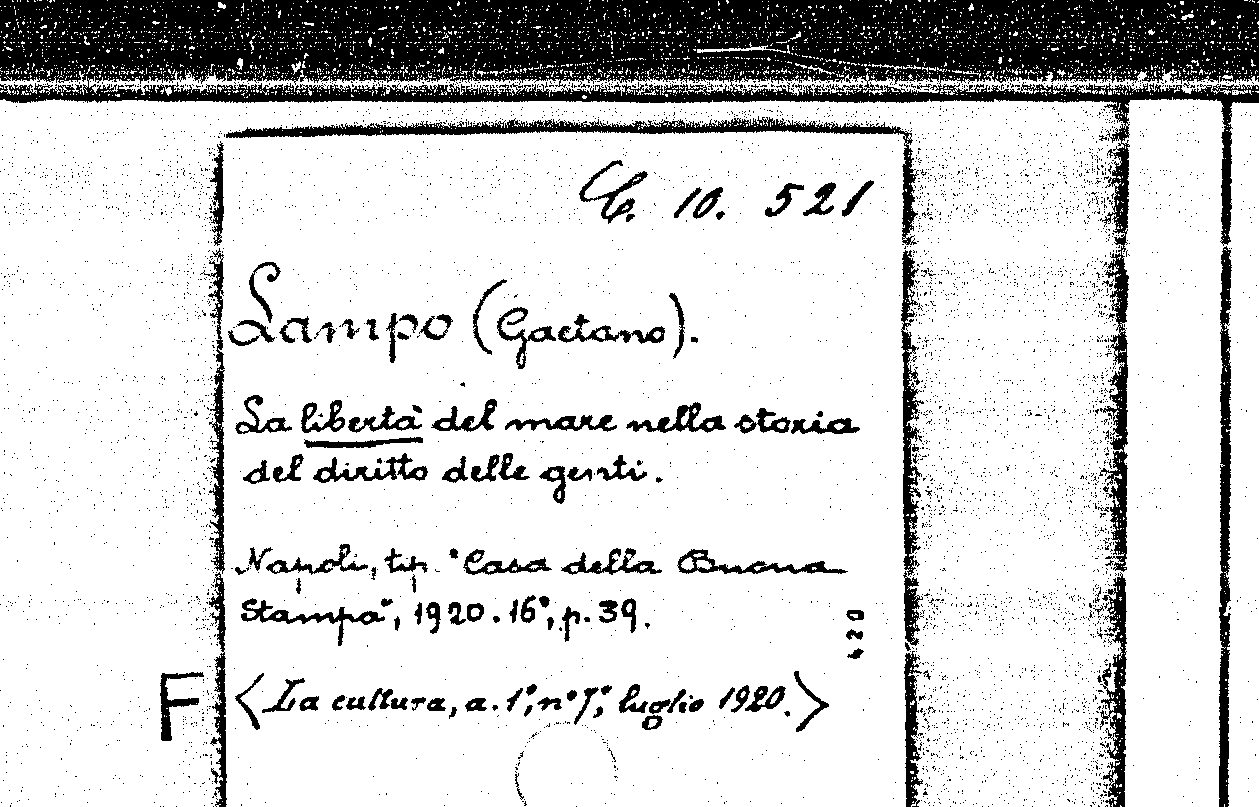 C. 10. 521
Lampo (Gaetano).
La libertà del mare nella storia
del diritto delle genti.
Napoli, tip. "Casa della Buona
Stampa", 1920. 16°, p. 39.
420
F
<La cultura, a. 1°, n° 7°, luglio 1920.>